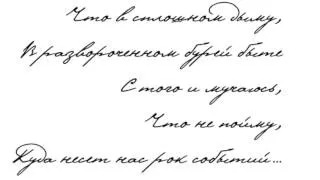 Что в сплошном дыму,
В развороченном бурей быте
С того и мучаюсь,
Что не пойму,
Куда несет нас рок событий...